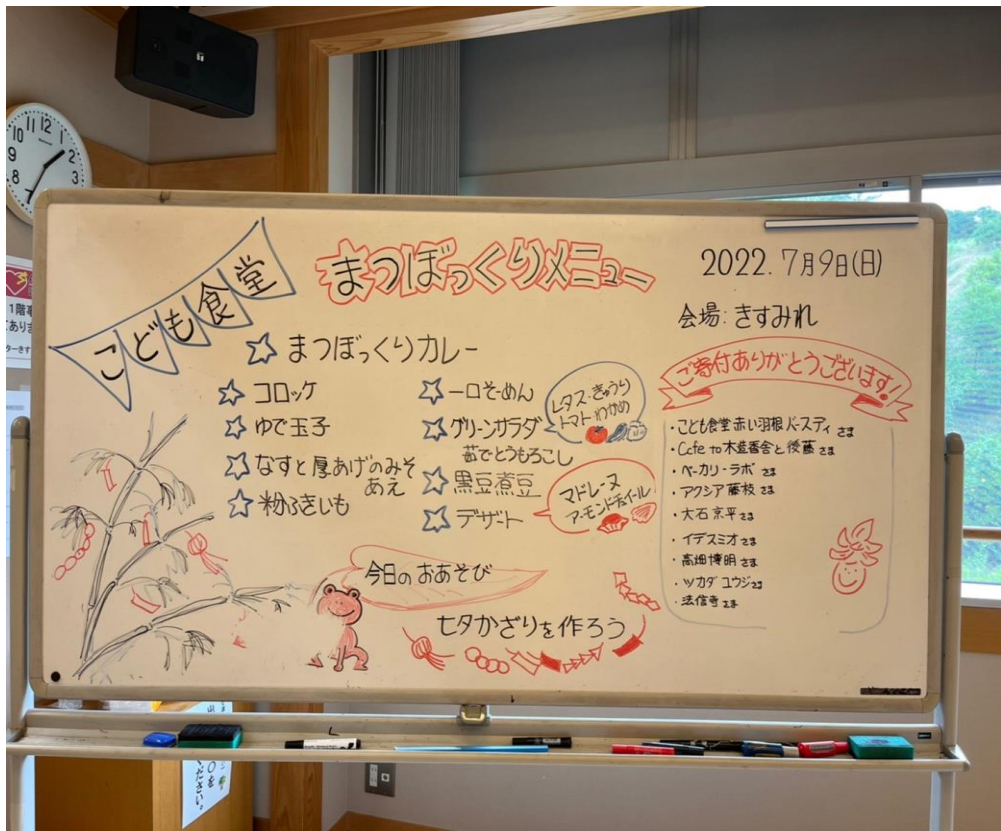 こども食堂
まつぼっくりメニュー
2022.7月9日(日)
会場:きすみれ
☆まつぼっくりカレー
☆コロッケ
☆ゆで玉子
☆なすと厚あげのみそ
あえ
☆粉ふきいも
☆一口そーめん
☆グリーンサラダ
茹でとうもろこし
レタス・きゅうり
トマト わかめ
☆黒豆煮豆
☆デザート
マドレーヌ
アーモンドチュイール
今日のおあそび
七夕かざりを作ろう
ご寄付ありがとうございます!
・こども食堂赤い羽根バースディ さま
・Cafe to 木造舎と後藤 さま
・ベーカリーラボ さま
・アクシア藤枝 さま
・大石京平 さま
・イデスミオ さま
・高畑博明 さま
・ツカダ ユウジ さま
・法信寺 さま
10 11 12 1
9 2
8 3
1階
ください。